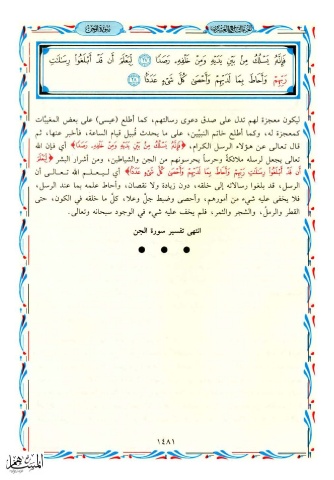 فَإِنَّهُ يَسْلُكُ مِنْ بَيْنِ يَدَيْهِ وَمِنْ خَلْفِهِ رَصَدًا ﴿٢٧﴾ لِيَعْلَمَ أَن قَدْ أَبْلَغُوا رِسَالَاتِ
رَبِّهِمْ وَأَحَاطَ بِمَا لَدَيْهِمْ وَأَحْصَىٰ كُلَّ شَيْءٍ عَدَدًا ﴿٢٨﴾
ليكون معجزة لهم تدل على صدق دعوى رسالتهم، كما أطلع (عيسى) على بعض المغيبات
كمعجزة له، وكما أطلع خاتم النبيّين، على ما يحدث قُبيل قيام الساعة، فأخبر عنها، ثم
قال تعالى عن هؤلاء الرسل الكرام: ﴿فَإِنَّهُ يَسْلُكُ مِنْ بَيْنِ يَدَيْهِ وَمِنْ خَلْفِهِ رَصَدًا﴾ أي فإن الله
تعالى يجعل لرسله ملائكةً وحرساً يحرسونهم من الجن والشياطين، ومن أشرار البشر ﴿لِيَعْلَمَ
أَن قَدْ أَبْلَغُوا رِسَالَاتِ رَبِّهِمْ وَأَحَاطَ بِمَا لَدَيْهِمْ وَأَحْصَىٰ كُلَّ شَيْءٍ عَدَدًا﴾ أي ليعلم الله تعالى أن
الرسل، قد بلغوا رسالاته إلى خلقه، دون زيادة ولا نقصان، وأحاط علمه بما عند الرسل،
فلا يخفى عليه شيء من أمورهم، وأحصى وضبط جلَّ وعلا، كلَّ ما خلقه في الكون، حتى
القطر والرملَ، والشجر والثمر، فلم يخف عليه شيء في الوجود سبحانه وتعالى.
انتهى تفسير سورة الجن
١٤٨١